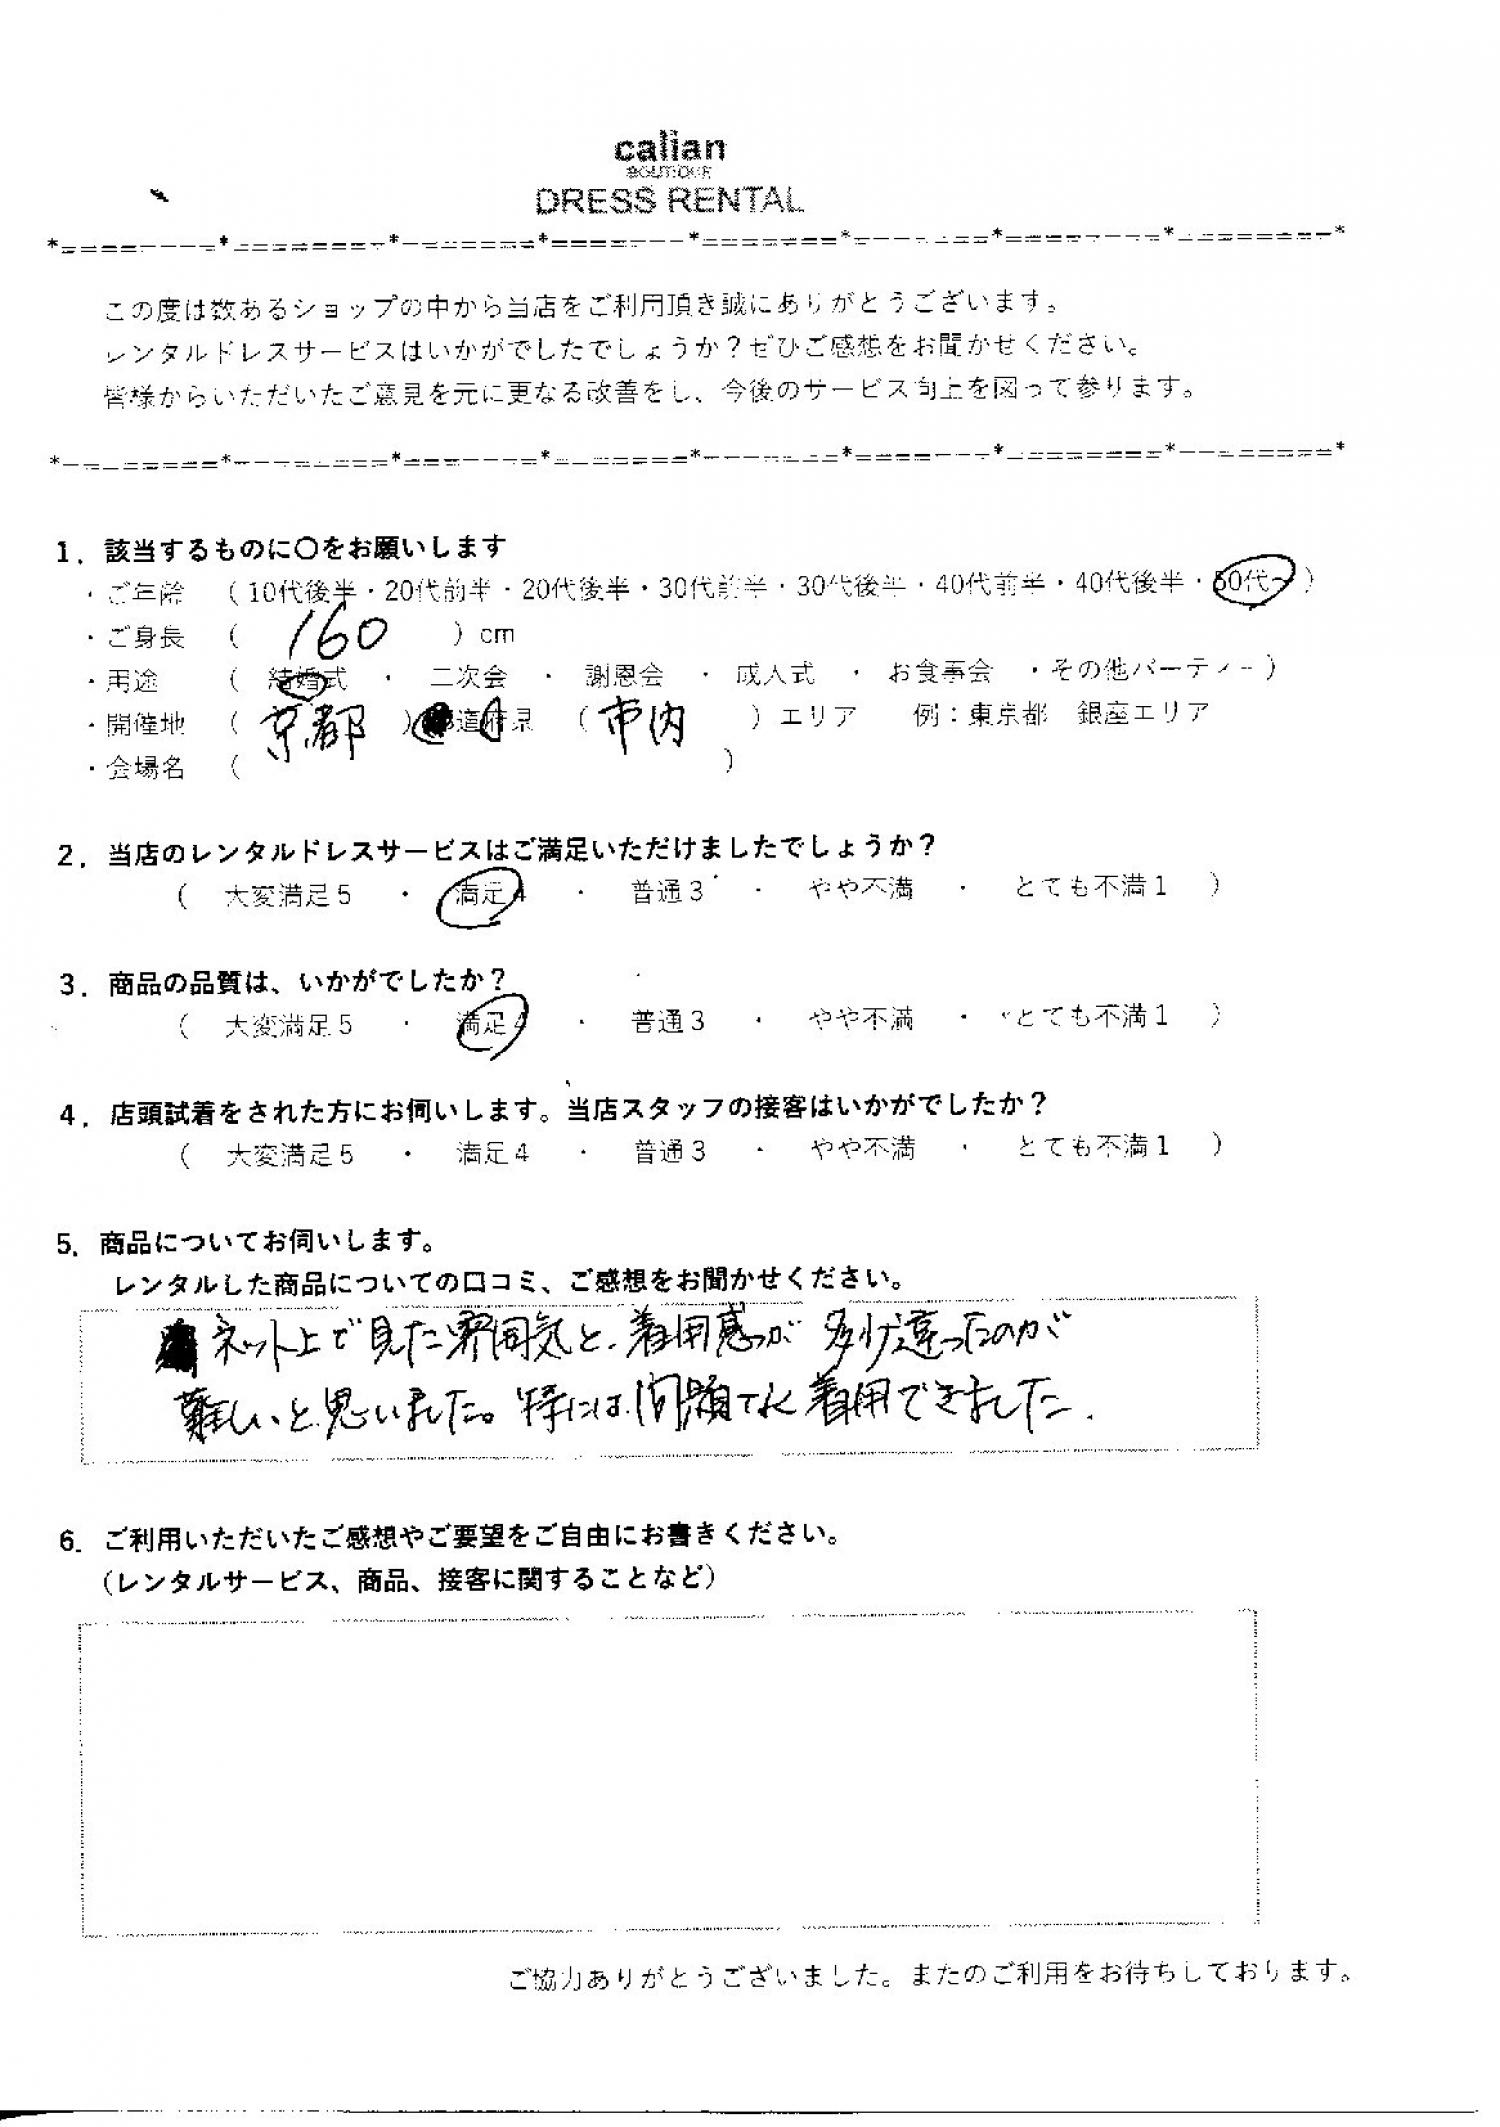 calian
BOUTIQUE
DRESS RENTAL
この度は数あるショップの中から当店をご利用頂き誠にありがとうございます。
レンタルドレスサービスはいかがでしたでしょうか？ぜひご感想をお聞かせください。
皆様からいただいたご意見を元に更なる改善をし、今後のサービス向上を図って参ります。
1．該当するものに〇をお願いします
・ご年齢 （10代後半・20代前半・20代後半・30代前半・30代後半・40代前半・40代後半・50代~）
・ご身長 （ 160 ）cm
・用途 （ 結婚式 ・ 二次会 ・ 謝恩会 ・ 成人式 ・ お食事会 ・その他パーティー）
・開催地 （ 京都 ）都道府県 （ 市内 ）エリア 例：東京都 銀座エリア
・会場名 （ ）
2．当店のレンタルドレスサービスはご満足いただけましたでしょうか？
（ 大変満足５ ・ 満足４ ・ 普通３ ・ やや不満 ・ とても不満１ ）
3．商品の品質は、いかがでしたか？
（ 大変満足５ ・ 満足４ ・ 普通３ ・ やや不満 ・ とても不満１ ）
4．店頭試着をされた方にお伺いします。当店スタッフの接客はいかがでしたか？
（ 大変満足５ ・ 満足４ ・ 普通３ ・ やや不満 ・ とても不満１ ）
5．商品についてお伺いします。
レンタルした商品についての口コミ、ご感想をお聞かせください。
ネット上で見た雰囲気と、着用感が 多少違ったのが
難しいと思いました。特には問題なく着用できました.
6．ご利用いただいたご感想やご要望をご自由にお書きください。
（レンタルサービス、商品、接客に関することなど）
ご協力ありがとうございました。またのご利用をお待ちしております。